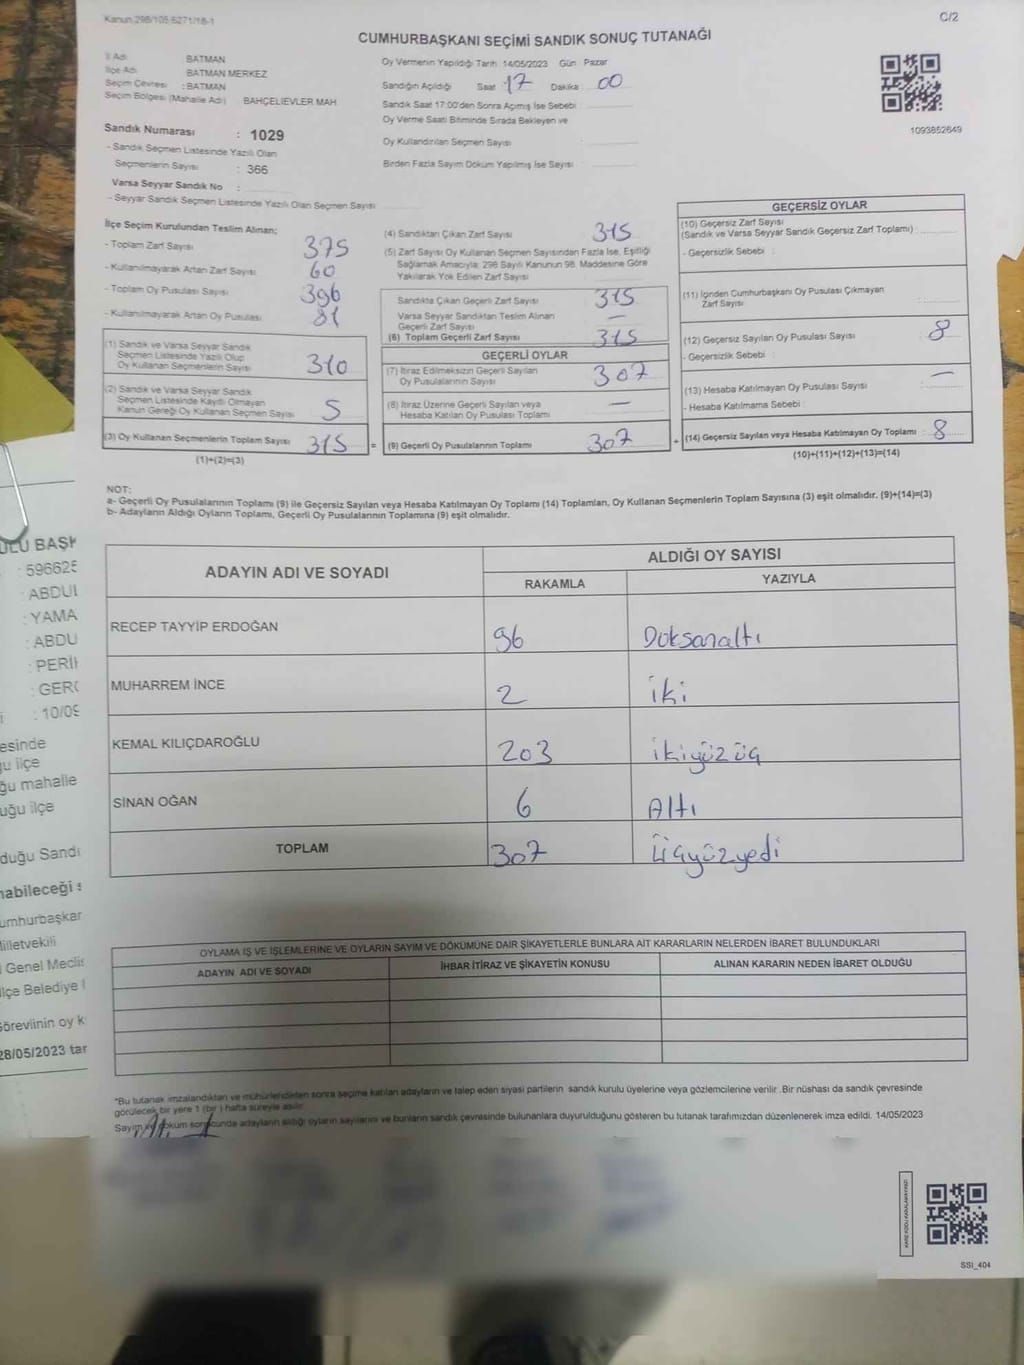 Kanun 298/105-6271/18-1
C/2
CUMHURBAŞKANI SEÇİMİ SANDIK SONUÇ TUTANAĞI
İl Adı BATMAN
İlçe Adı BATMAN MERKEZ
Seçim Çevresi : BATMAN
Seçim Bölgesi (Mahalle Adı) BAHÇELİEVLER MAH
Sandık Numarası : 1029
- Sandık Seçmen Listesinde Yazılı Olan
Seçmenlerin Sayısı : 366
Varsa Seyyar Sandık No :
- Seyyar Sandık Seçmen Listesinde Yazılı Olan Seçmen Sayısı
Oy Vermenin Yapıldığı Tarih : 14/05/2023 Gün Pazar
Sandığın Açıldığı Saat : 17 Dakika : 00
Sandık Saat 17:00'den Sonra Açılmış İse Sebebi :
Oy Verme Saati Bitiminde Sırada Bekleyen ve
Oy Kullandırılan Seçmen Sayısı :
Birden Fazla Sayım Döküm Yapılmış İse Sayısı :
1093852649
İlçe Seçim Kurulundan Teslim Alınan;
- Toplam Zarf Sayısı 375
- Kullanılmayarak Artan Zarf Sayısı 60
- Toplam Oy Pusulası Sayısı 396
- Kullanılmayarak Artan Oy Pusulası 81
(1) Sandık ve Varsa Seyyar Sandık
Seçmen Listesinde Yazılı Olup
Oy Kullanan Seçmenlerin Sayısı 310
(2) Sandık ve Varsa Seyyar Sandık
Seçmen Listesinde Kayıtlı Olmayan
Kanun Gereği Oy Kullanan Seçmen Sayısı 5
(3) Oy Kullanan Seçmenlerin Toplam Sayısı 315 =
(1)+(2)=(3)
(4) Sandıktan Çıkan Zarf Sayısı 315
(5) Zarf Sayısı Oy Kullanan Seçmen Sayısından Fazla İse, Eşitliği
Sağlamak Amacıyla, 298 Sayılı Kanunun 98. Maddesine Göre
Yakılarak Yok Edilen Zarf Sayısı
Sandıkta Çıkan Geçerli Zarf Sayısı 315
Varsa Seyyar Sandıktan Teslim Alınan
Geçerli Zarf Sayısı —
(6) Toplam Geçerli Zarf Sayısı 315
GEÇERLİ OYLAR
(7) İtiraz Edilmeksizin Geçerli Sayılan
Oy Pusulalarının Sayısı 307
(8) İtiraz Üzerine Geçerli Sayılan veya
Hesaba Katılan Oy Pusulası Toplamı —
(9) Geçerli Oy Pusulalarının Toplamı 307 +
GEÇERSİZ OYLAR
(10) Geçersiz Zarf Sayısı
(Sandık ve Varsa Seyyar Sandık Geçersiz Zarf Toplamı) :
- Geçersizlik Sebebi :
(11) İçinden Cumhurbaşkanı Oy Pusulası Çıkmayan
Zarf Sayısı :
(12) Geçersiz Sayılan Oy Pusulası Sayısı : 8
- Geçersizlik Sebebi :
(13) Hesaba Katılmayan Oy Pusulası Sayısı : —
- Hesaba Katılmama Sebebi :
(14) Geçersiz Sayılan veya Hesaba Katılmayan Oy Toplamı : 8
(10)+(11)+(12)+(13)=(14)
NOT:
a- Geçerli Oy Pusulalarının Toplamı (9) ile Geçersiz Sayılan veya Hesaba Katılmayan Oy Toplamı (14) Toplamları, Oy Kullanan Seçmenlerin Toplam Sayısına (3) eşit olmalıdır. (9)+(14)=(3)
b- Adayların Aldığı Oyların Toplamı, Geçerli Oy Pusulalarının Toplamına (9) eşit olmalıdır.
ADAYIN ADI VE SOYADI
ALDIĞI OY SAYISI
RAKAMLA YAZIYLA
RECEP TAYYİP ERDOĞAN 96 Doksanaltı
MUHARREM İNCE 2 İki
KEMAL KILIÇDAROĞLU 203 İkiyüzüç
SİNAN OĞAN 6 Altı
TOPLAM 307 Üçyüzyedi
OYLAMA İŞ VE İŞLEMLERİNE VE OYLARIN SAYIM VE DÖKÜMÜNE DAİR ŞİKAYETLERLE BUNLARA AİT KARARLARIN NELERDEN İBARET BULUNDUKLARI
ADAYIN ADI VE SOYADI İHBAR İTİRAZ VE ŞİKAYETİN KONUSU ALINAN KARARIN NEDEN İBARET OLDUĞU
*Bu tutanak imzalandıktan ve mühürlendikten sonra seçime katılan adayların ve talep eden siyasi partilerin sandık kurulu üyelerine veya gözlemcilerine verilir. Bir nüshası da sandık çevresinde
görülecek bir yere 1 (bir) hafta süreyle asılır.
Sayım ve döküm sonucunda adayların aldığı oyların sayılarını ve bunların sandık çevresinde bulunanlara duyurulduğunu gösteren bu tutanak tarafımızdan düzenlenerek imza edildi. 14/05/2023
SSI_404
ULU BAŞK
: 596625
: ABDUL
: YAMA
: ABDU
: PERİH
: GERÇ
: 10/09
esinde
ğu ilçe
ğu mahalle
uğu ilçe
duğu Sandı
nabileceği s
umhurbaşkan
Milletvekili
l Genel Meclis
lçe Belediye
Görevlinin oy k
28/05/2023 tar